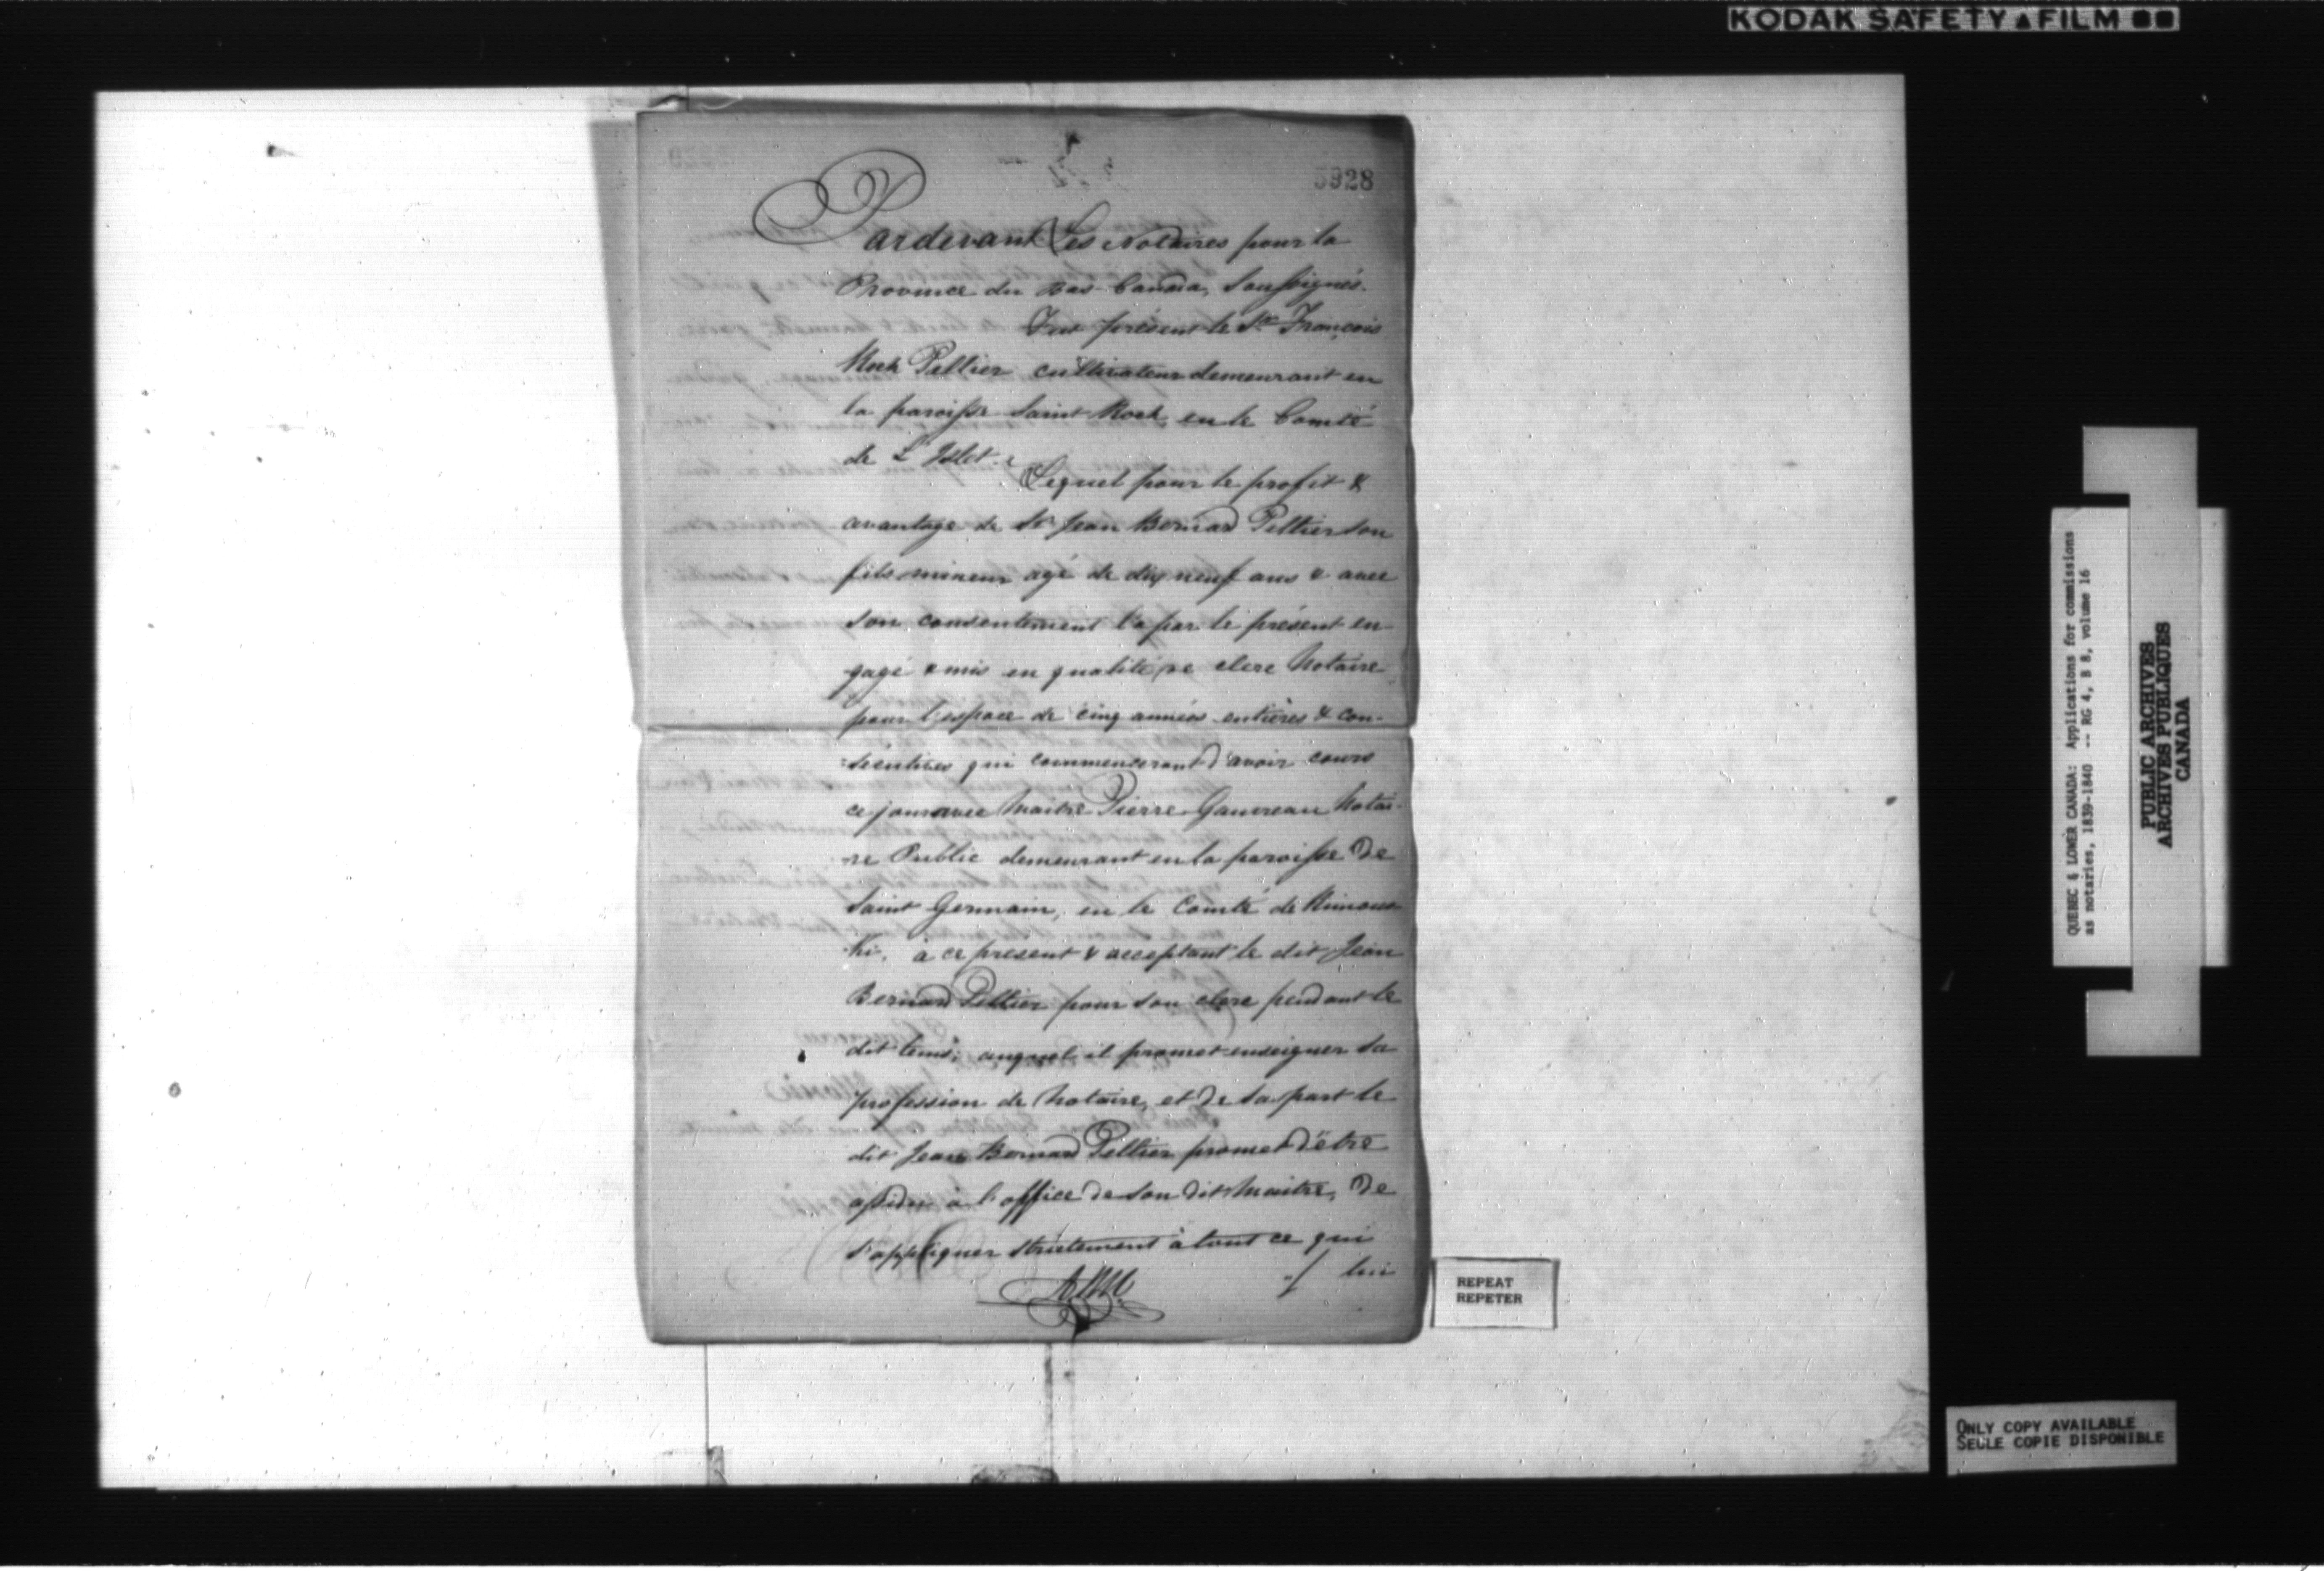 KODAK SAFETY ▲ FILM
5928
Pardevant Les Notaires pour la
Province du Bas Canada, Soussignés.
Fut présent le Sr. François
Roch Peltier cultivateur demeurant en
la paroisse Saint Roch, en le Comté
de L'Islet.
Lequel pour le profit &
avantage de Sr Jean Bernard Peltier son
fils mineur agé de dix neuf ans & avec
son consentement l'a par le présent en-
gagé & mis en qualité de clerc Notaire
pour l'espace de cinq années entières & con-
sécutives qui commenceront d'avoir cours
ce jour avec Maitre Pierre Gauvreau Notai-
re Public demeurant en la paroisse de
Saint Germain, en le Comté de Rimous-
ki, à ce présent & acceptant le dit Jean
Bernard Peltier pour son clerc pendant le
dit tems; auquel il promet enseigner sa
profession de Notaire, et de sa part le
dit Jean Bernard Peltier promet d'être
assidu à l'office de son dit Maitre, de
s'appliquer strictement à tout ce qui
lui
REPEAT
REPETER
QUEBEC & LOWER CANADA: Applications for commissions
as notaries, 1839-1840 -- RG 4, B 8, volume 16
PUBLIC ARCHIVES
ARCHIVES PUBLIQUES
CANADA
ONLY COPY AVAILABLE
SEULE COPIE DISPONIBLE